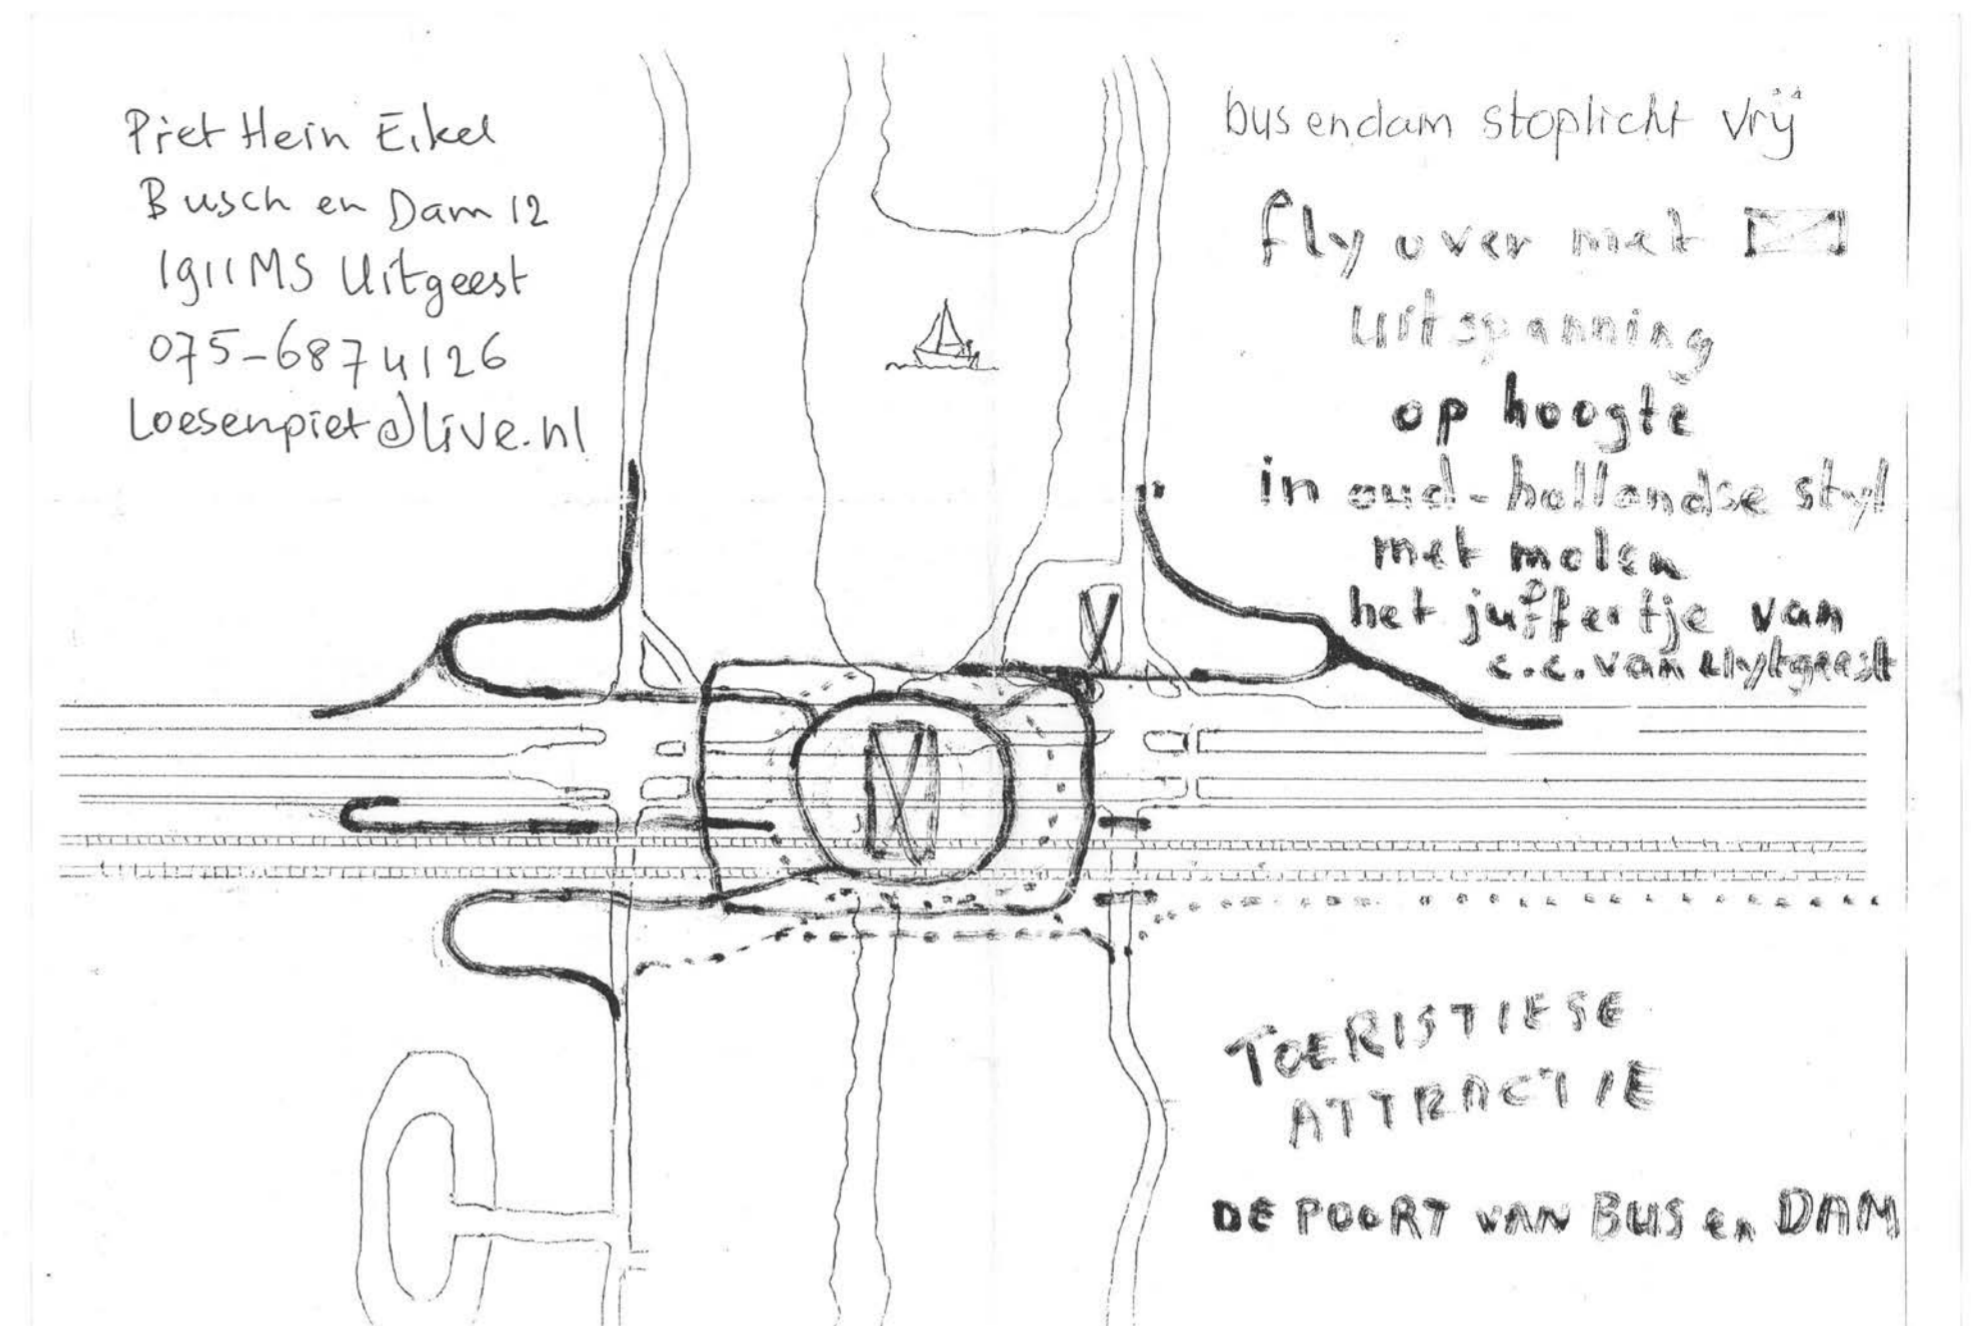 Piet Hein Eikel
Busch en Dam 12
1911MS Uitgeest
075-6874126
loesenpiet@live.nl
busendam stoplicht vrij
fly over met
uitspanning
op hoogte
in oud-hollandse styl
met molen
het juffertje van
c.c. van uytgeest
TOERISTIESE
ATTRACTIE
DE POORT VAN BUS en DAM